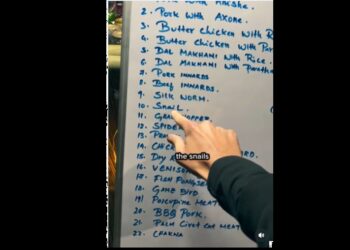 2. Pork with Axone.
3. Butter Chicken with R
4. Butter Chicken with Par
5. Dal Makhani with Rice.
6. Dal Makhani with Paratha
7. Pork innards
8. Beef innards.
9. Silk worm.
10. Snail.
11. Grasshopper.
12. Spider
13.
14.
15. Dry
16. Venison
17. Fish
18. Game Bird
19. Porcupine meat
20. BBQ Pork.
21. Palm Civet Cat meat
22.
the snails